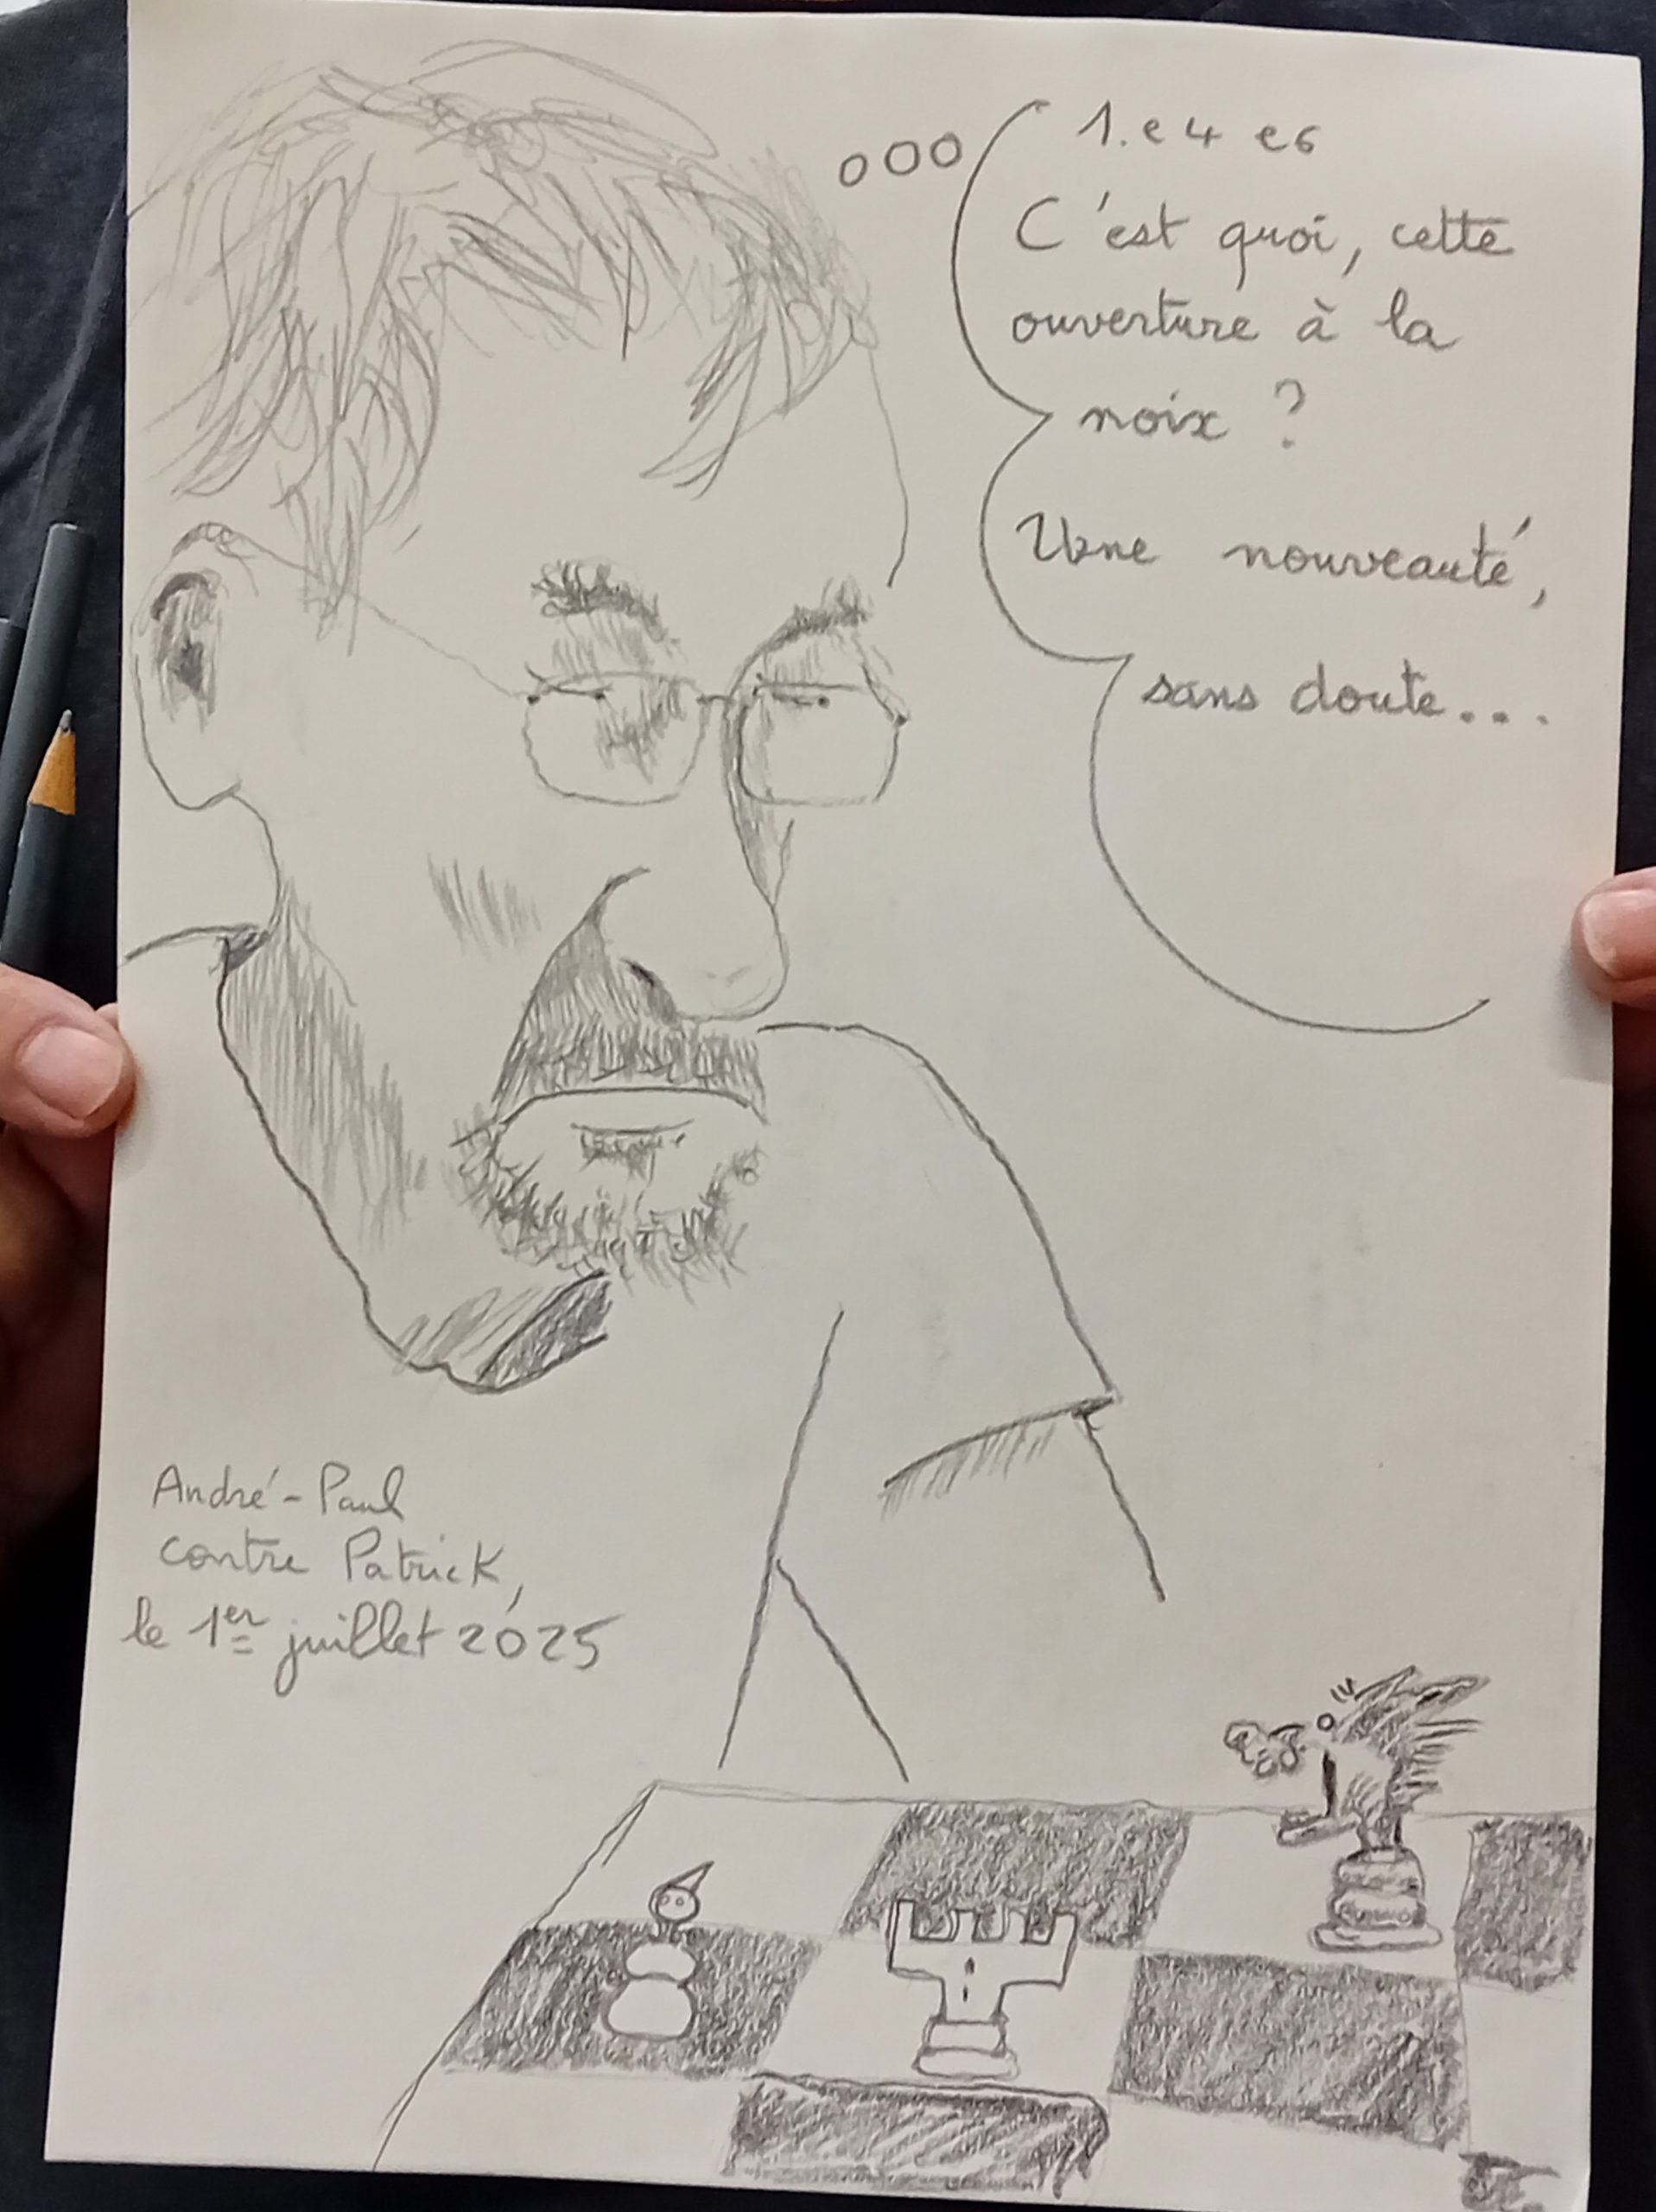 1. e4 e6
C'est quoi, cette
ouverture à la
noix ?
Une nouveauté,
sans doute...
André-Paul
contre Patrick,
le 1er juillet 2025